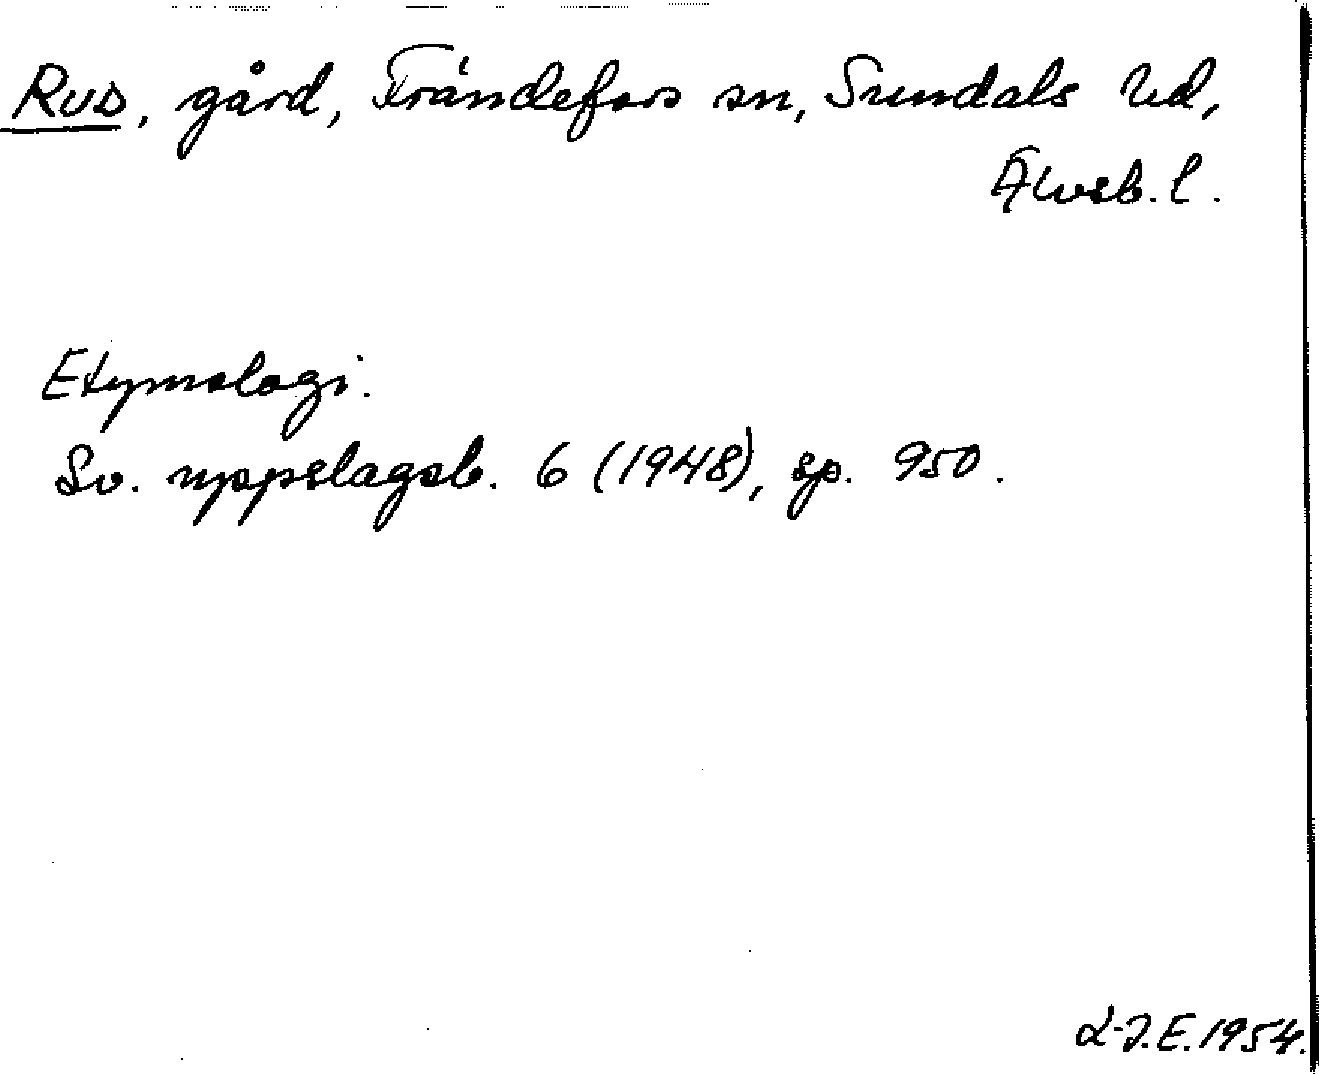 Rud, gård, Frändefors sn, Sundals hd,
Älvsb. l.
Etymologi.
Sv. uppslagsb. 6 (1948), sp. 950.
L-J.E. 1954.